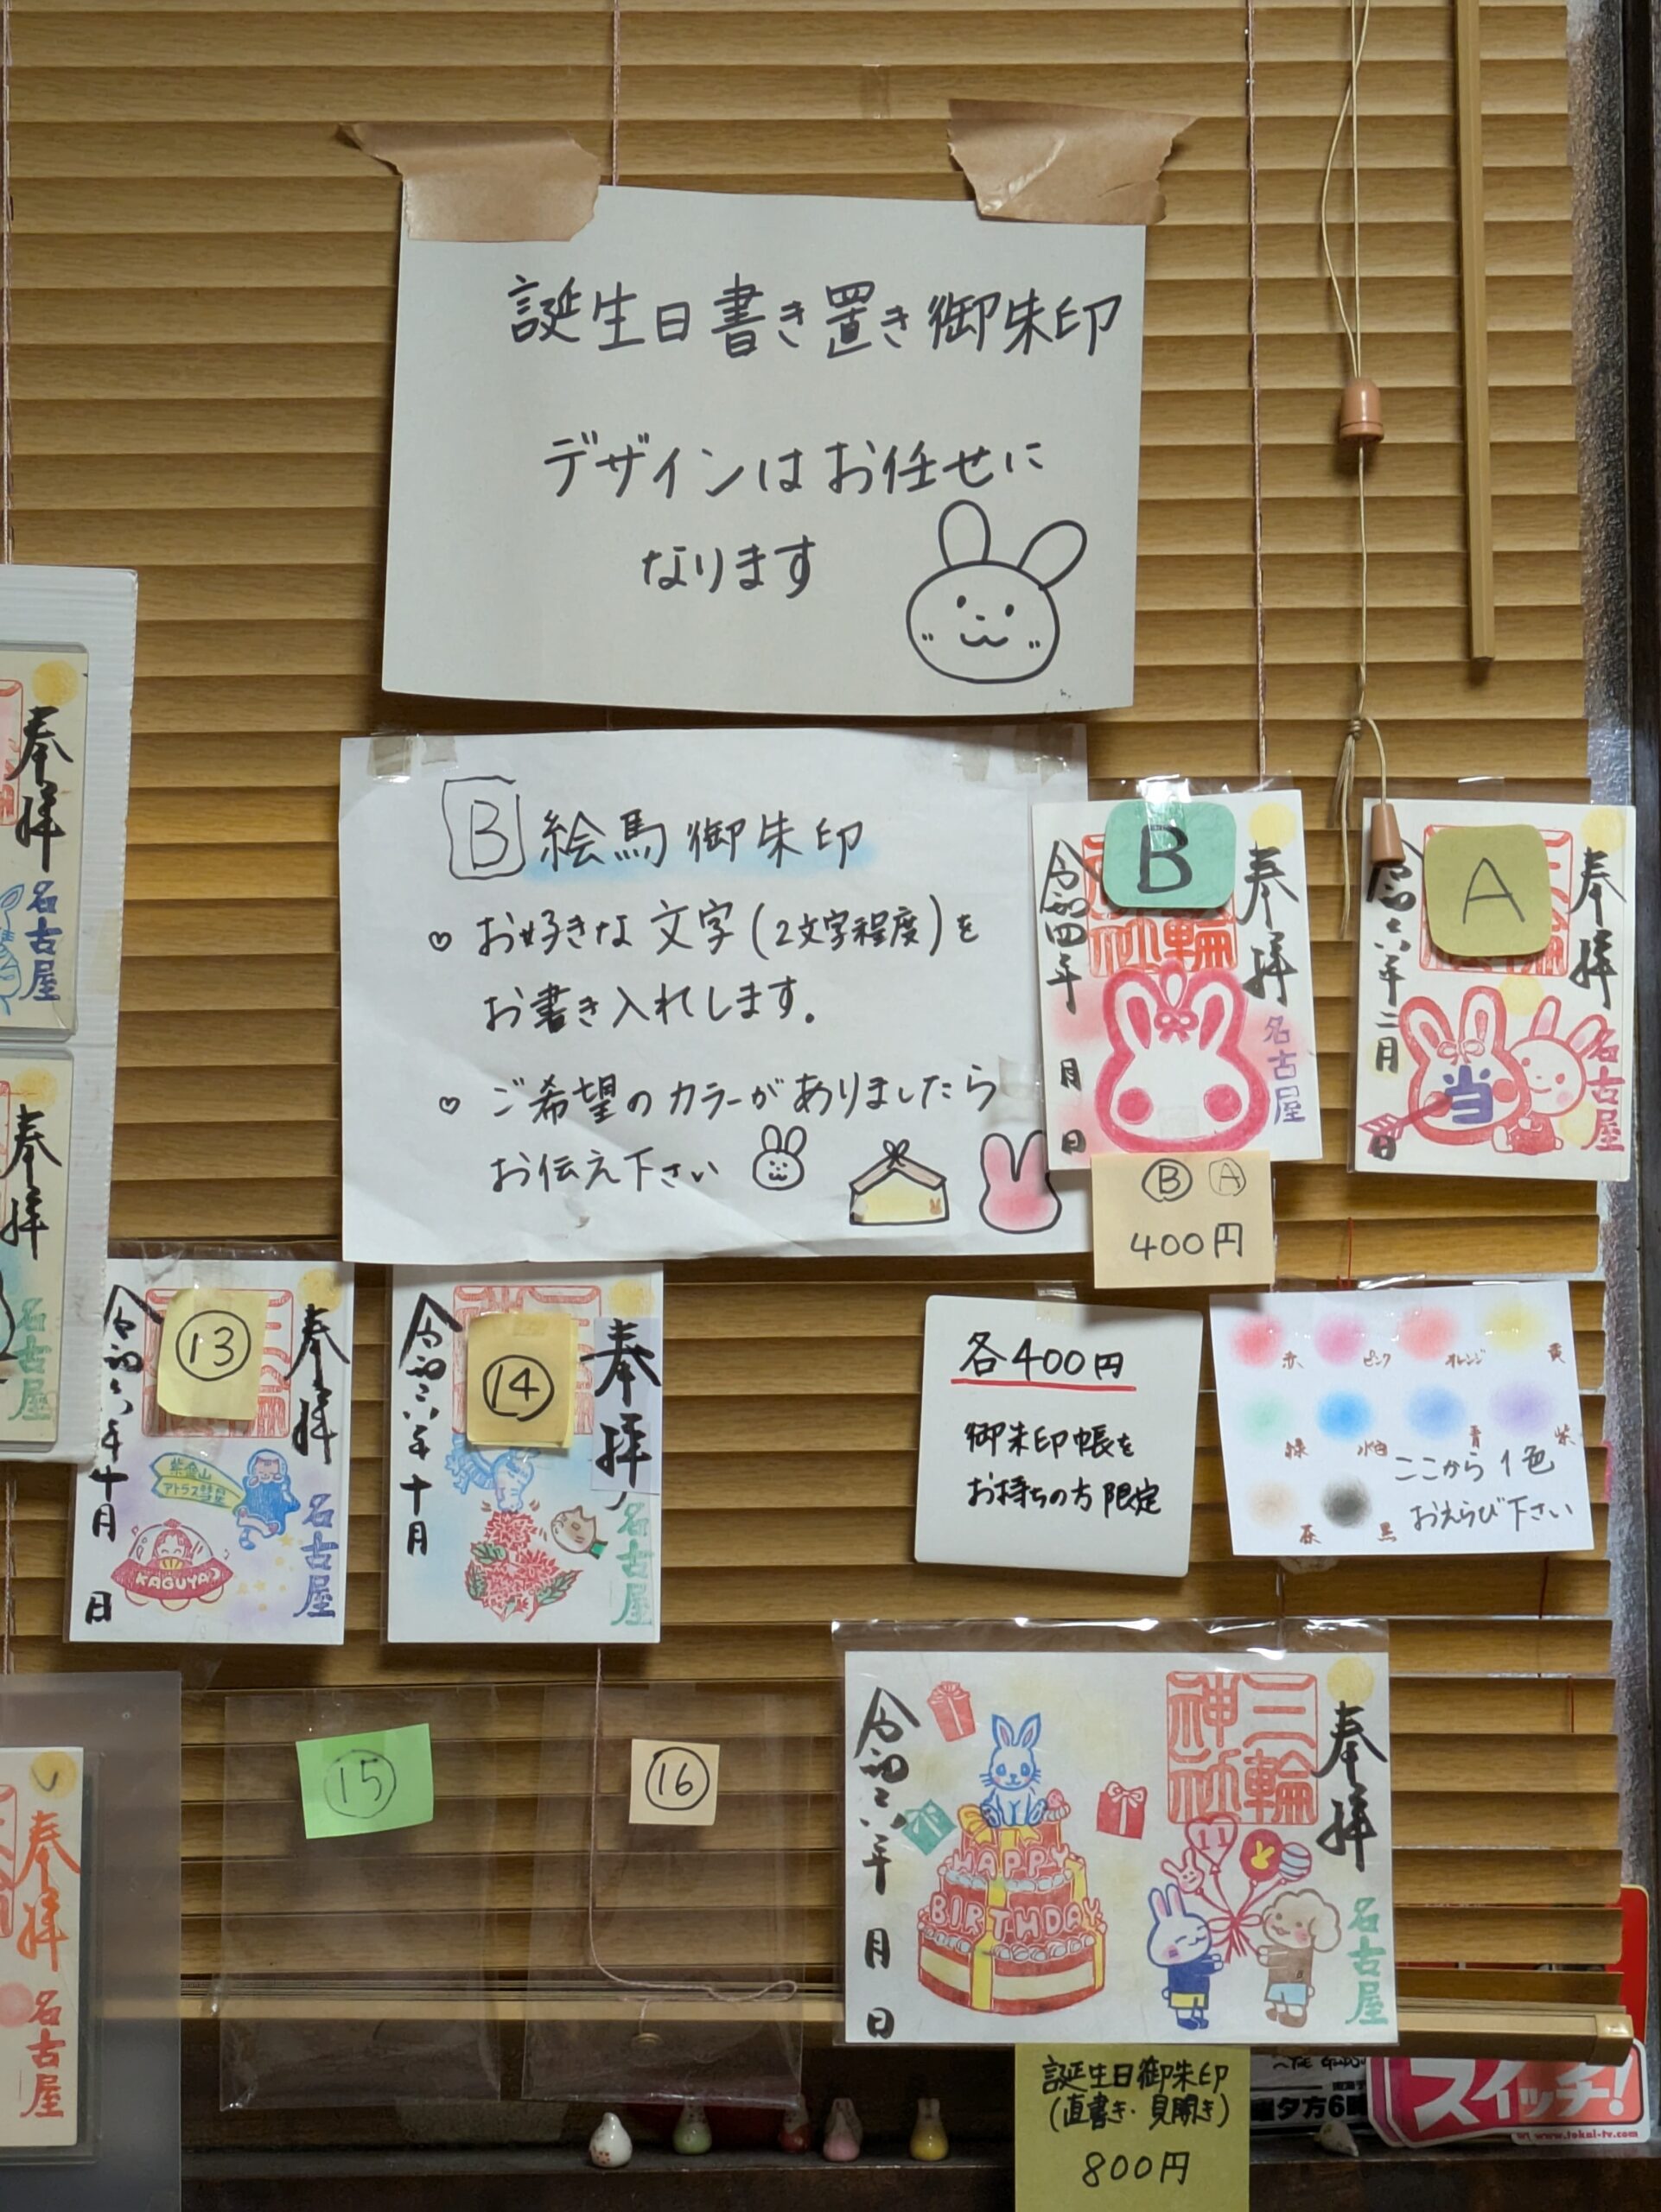 誕生日書き置き御朱印
デザインはお任せに
なります
B 絵馬御朱印
♡ お好きな文字(2文字程度)を
お書き入れします。
♡ ご希望のカラーがありましたら
お伝え下さい
B
奉拝
令和四年
月
日
名古屋
A
奉拝
令和六年二月
日
名古屋
当
Ⓑ Ⓐ
400円
奉拝
名古屋
奉拝
名古屋
⑬
奉拝
令和六年十月
日
名古屋
紫金山
アトラス彗星
KAGUYA
⑭
奉拝
令和六年十月
名古屋
各400円
御朱印帳を
お持ちの方限定
赤 ピンク オレンジ 黄
緑 水色 青 紫
茶 黒
ここから1色
おえらび下さい
⑮
⑯
奉拝
名古屋
奉拝
三輪
神社
令和六年
月
日
HAPPY
BIRTHDAY
11
名古屋
誕生日御朱印
(直書き・見開き)
800円
スイッチ!
夕方6
www.tokai-tv.com